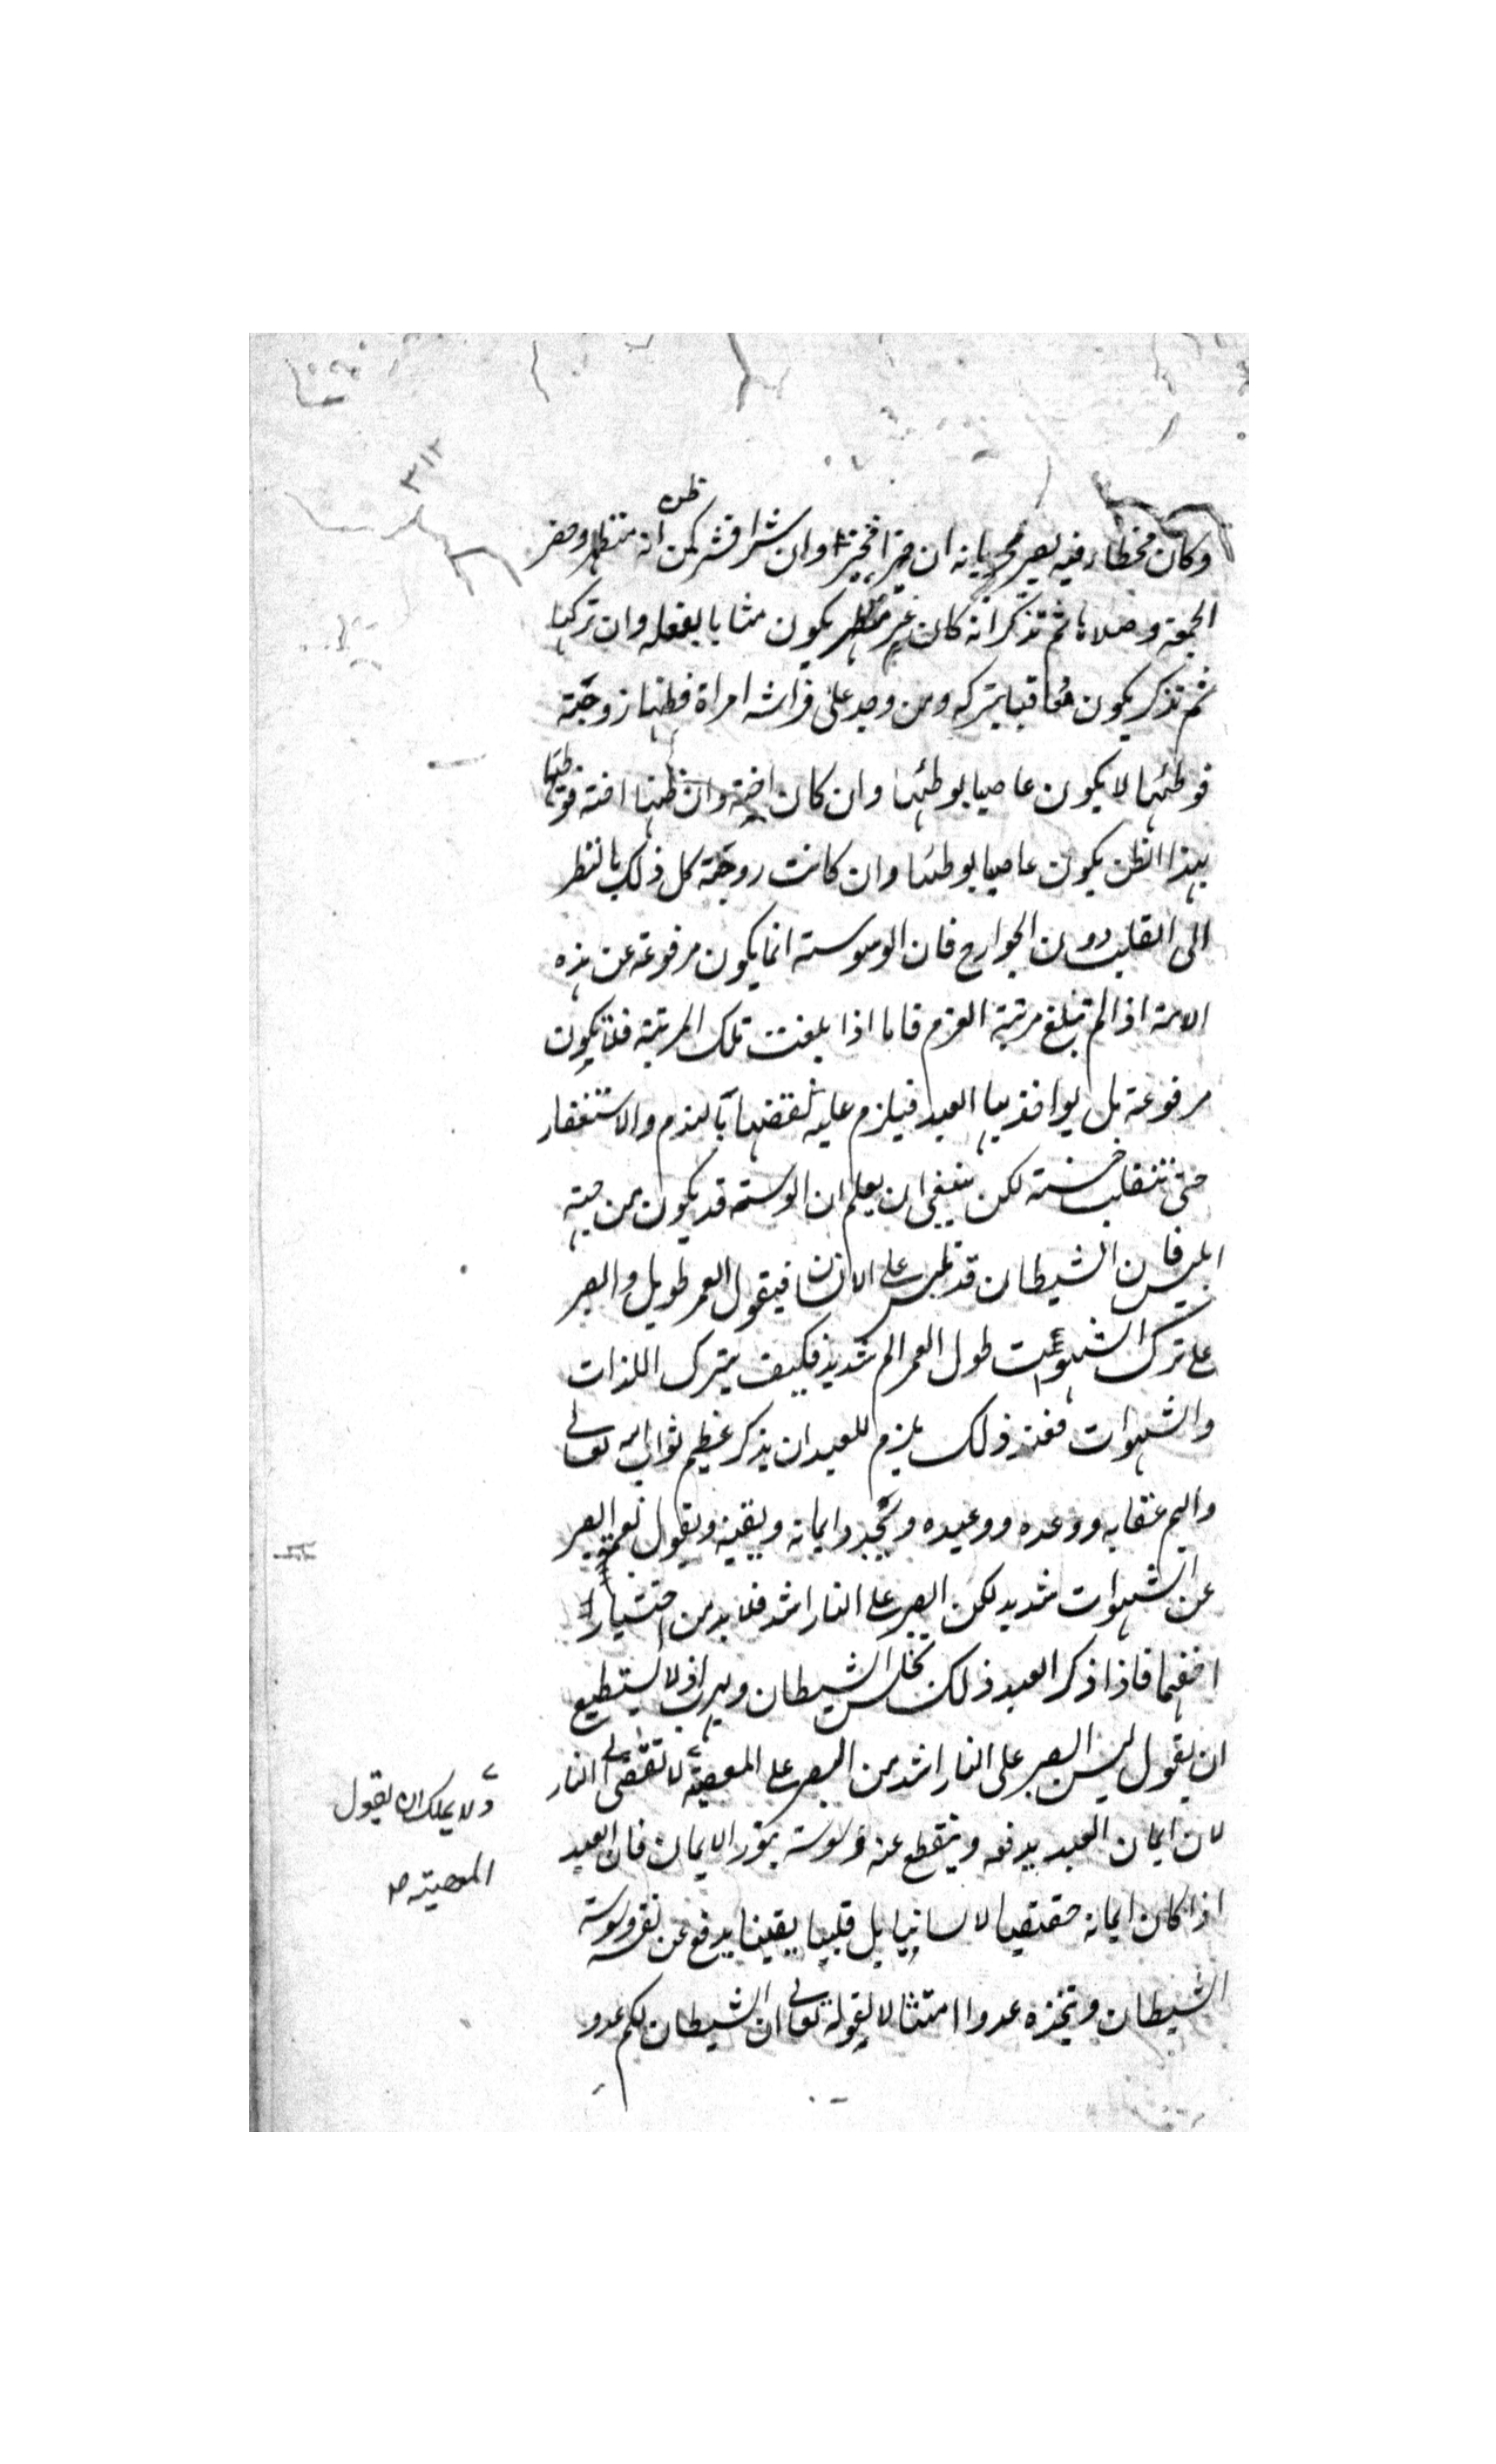 ٣١٢
ظن
وكان مخطأ فيه يصير مجزيا به ان خيرا فخير وان شرا فشر كمن انه متطهر وحضر
الجمعة وصلاها ثم تذكر انه كان غير متطهر يكون مثابا بفعله وان تركها
ثم تذكر يكون معاقبا بتركه ومن وجد على فراشه امراة فظنها زوجته
فوطئها لا يكون عاصيا بوطئها وان كان اجنبية وان ظنها اجنبية فوطئها
بهذا الظن يكون عاصيا بوطئها وان كانت زوجته كل ذلك بالنظر
الى القلب دون الجوارح فان الوسوسة انما يكون مرفوعة عن هذه
الامة اذا لم تبلغ مرتبة العزم فاما اذا بلغت تلك المرتبة فلا يكون
مرفوعة بل يواخذ بها العبد فيلزم عليه نقضها بالندم والاستغفار
حتى تنقلب حسنة لكن ينبغي ان يعلم ان الوسوسة قد يكون من جهة
ابليس فان الشيطان قد يلبس على الانسان فيقول العمر طويل والصبر
على ترك الشهوات طول العمر الم شديد فكيف يترك اللذات
والشهوات فعند ذلك يلزم للعبد ان يذكر عظيم ثواب الله تعالى
واليم عقابه ووعده ووعيده ويجدد ايمانه ويقينه ويقول نعم الصبر
عن الشهوات شديد لكن الصبر على النار اشد فلا بد من اختيار
اخفهما فاذا ذكر العبد ذلك يخنس الشيطان ويهرب اذ لا يستطيع
ان يقول ليس الصبر على النار اشد من الصبر على المعصية لا تفضي الى النار
لان ايمان العبد يدفعه وينقطع عنه وسوسته بنور الايمان فان العبد
اذا كان ايمانه حقيقيا لا لسانيا بل قلبيا يقينا يدفع عن نفسه وسوسة
الشيطان ويتخذه عدوا امتثالا لقوله تعالى ان الشيطان لكم عدو
ولا يملك ان يقول
المعصية صح